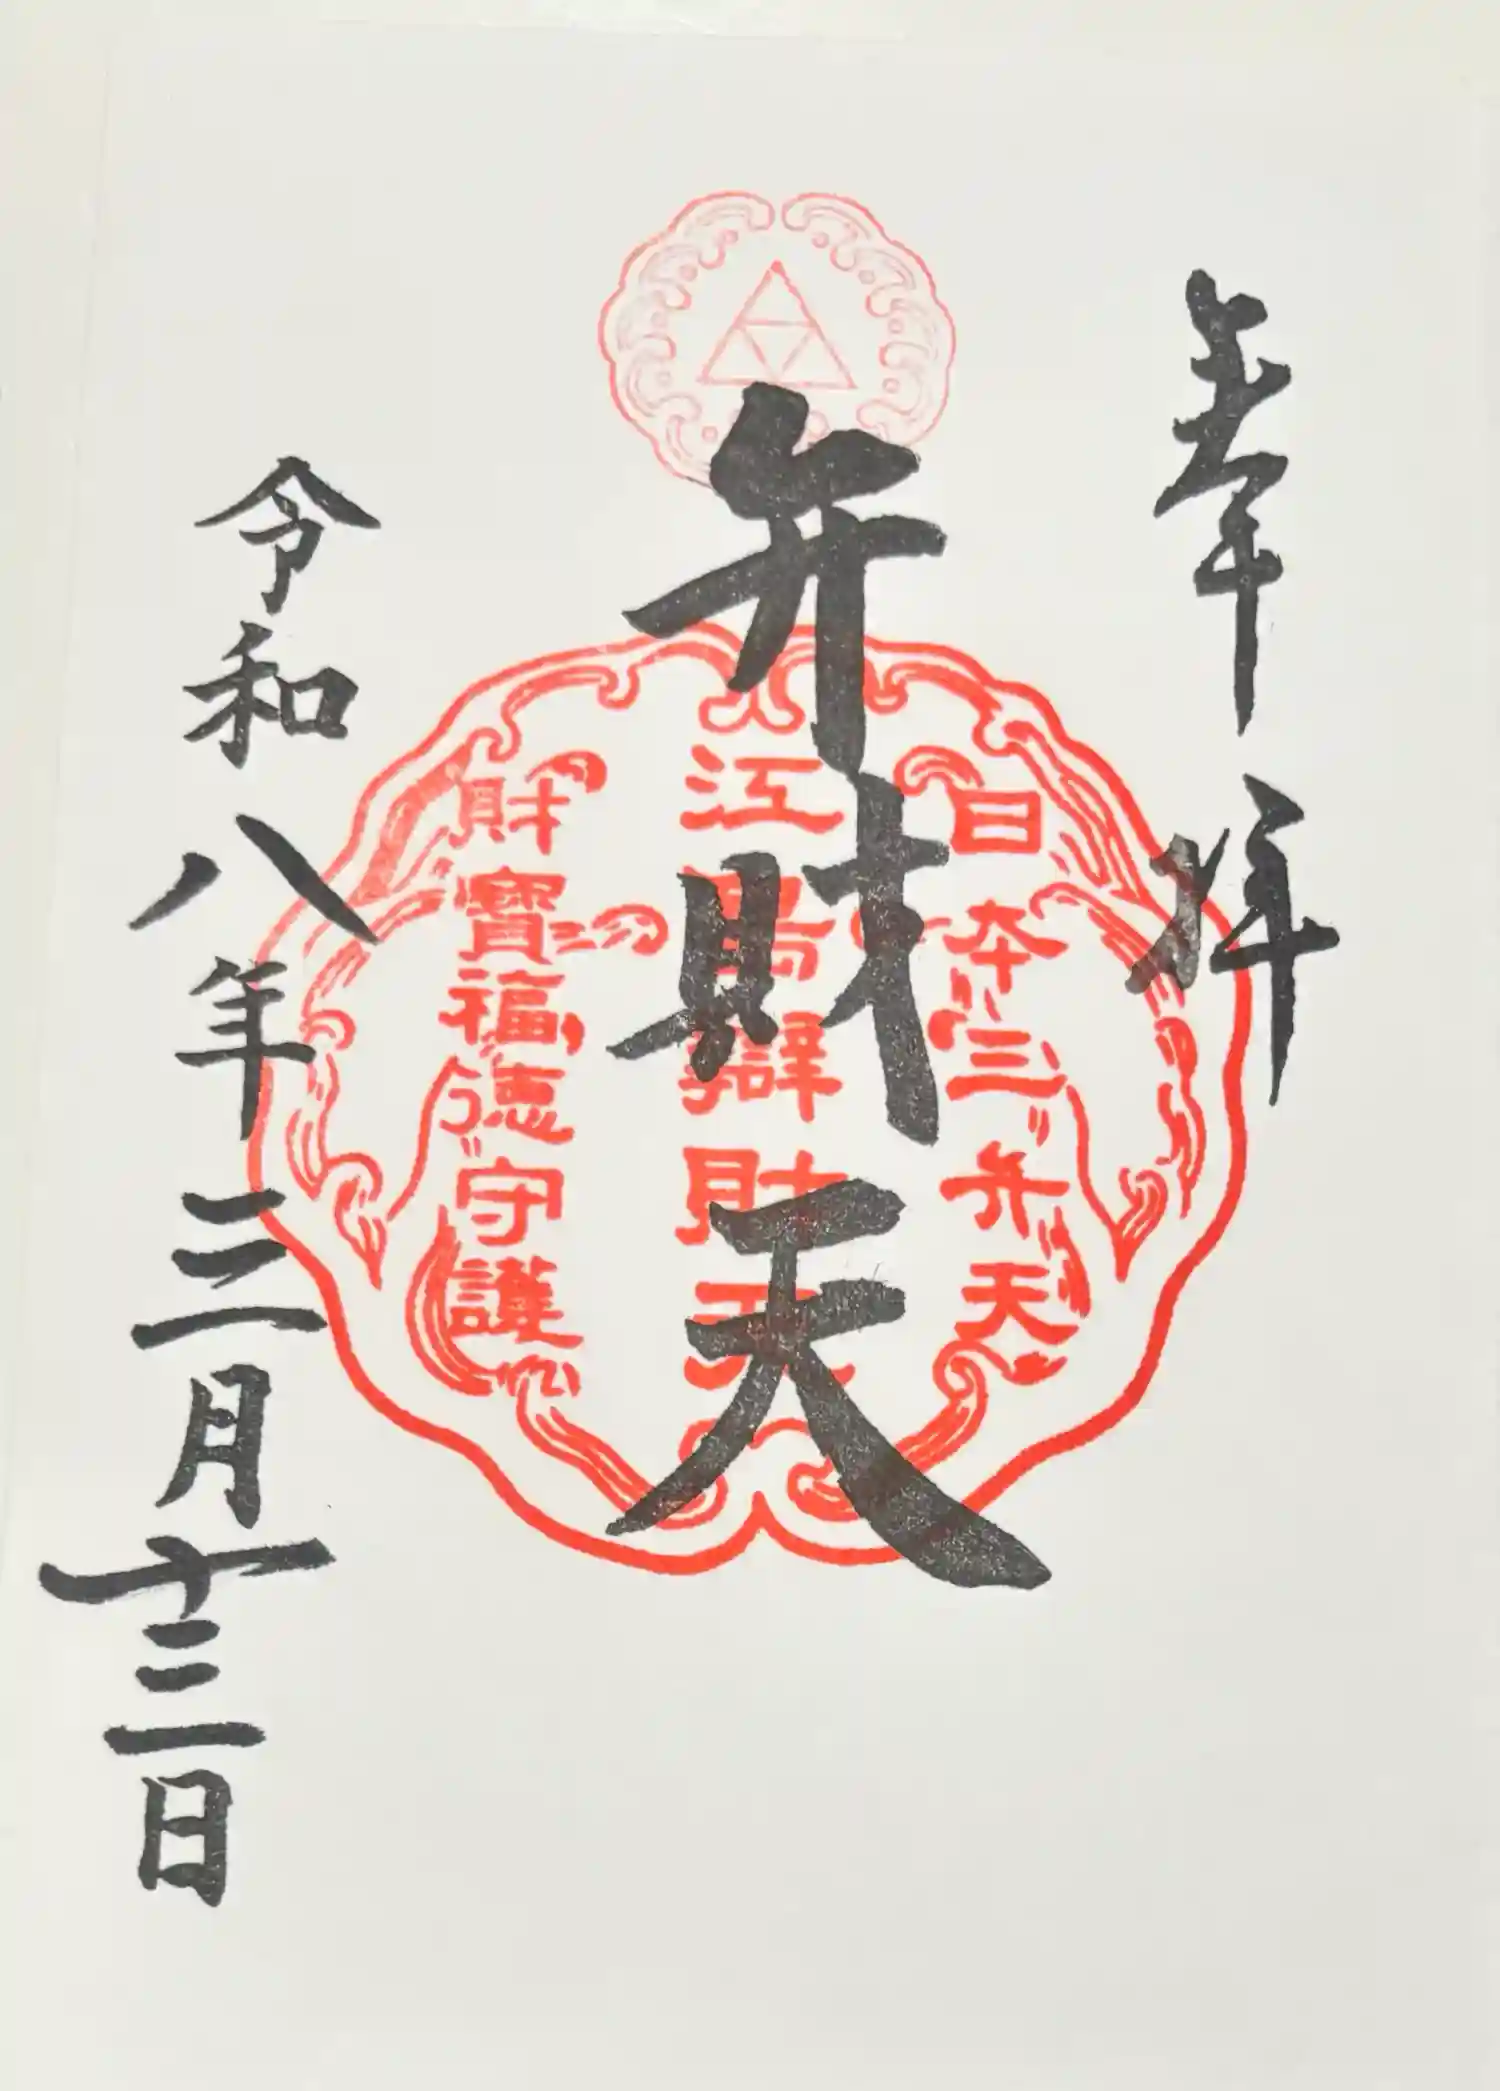 奉拝
日本三弁天
弁財天
江島辯財天
財寶福徳守護
令和八年三月十三日